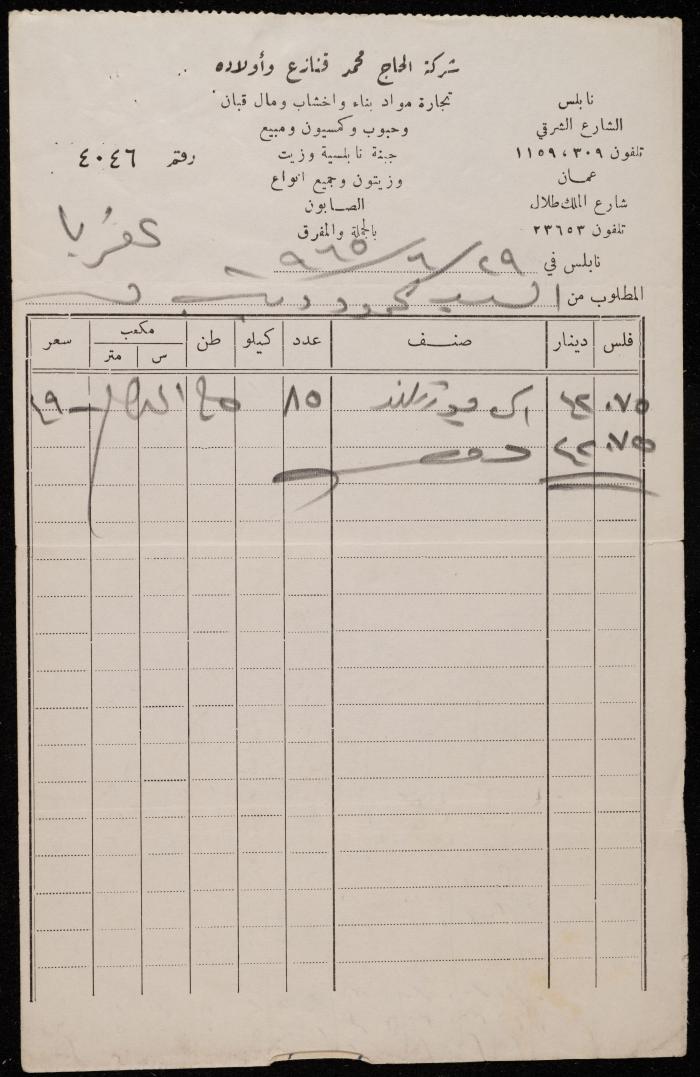 شركة الحاج محمد قنازع وأولاده
تجارة مواد بناء واخشاب ومال قبان
وحبوب وكمسيون ومبيع
جبنة نابلسية وزيت
وزيتون وجميع انواع
الصابون
بالجملة والمفرق
نابلس
الشارع الشرقي
تلفون ٣٠٩ ، ١١٥٩
عمان
شارع الملك طلال
تلفون ٢٣٦٥٣
رقم ٤٠٤٦
عقربا
نابلس في ٢٩/٦/٩٦٥
المطلوب من السيد محمود ديب
فلس دينار صنف عدد كيلو طن مكعب سعر
س متر
٠٧٥ ٤٢ ٨٥
٠٧٥ ٤٢